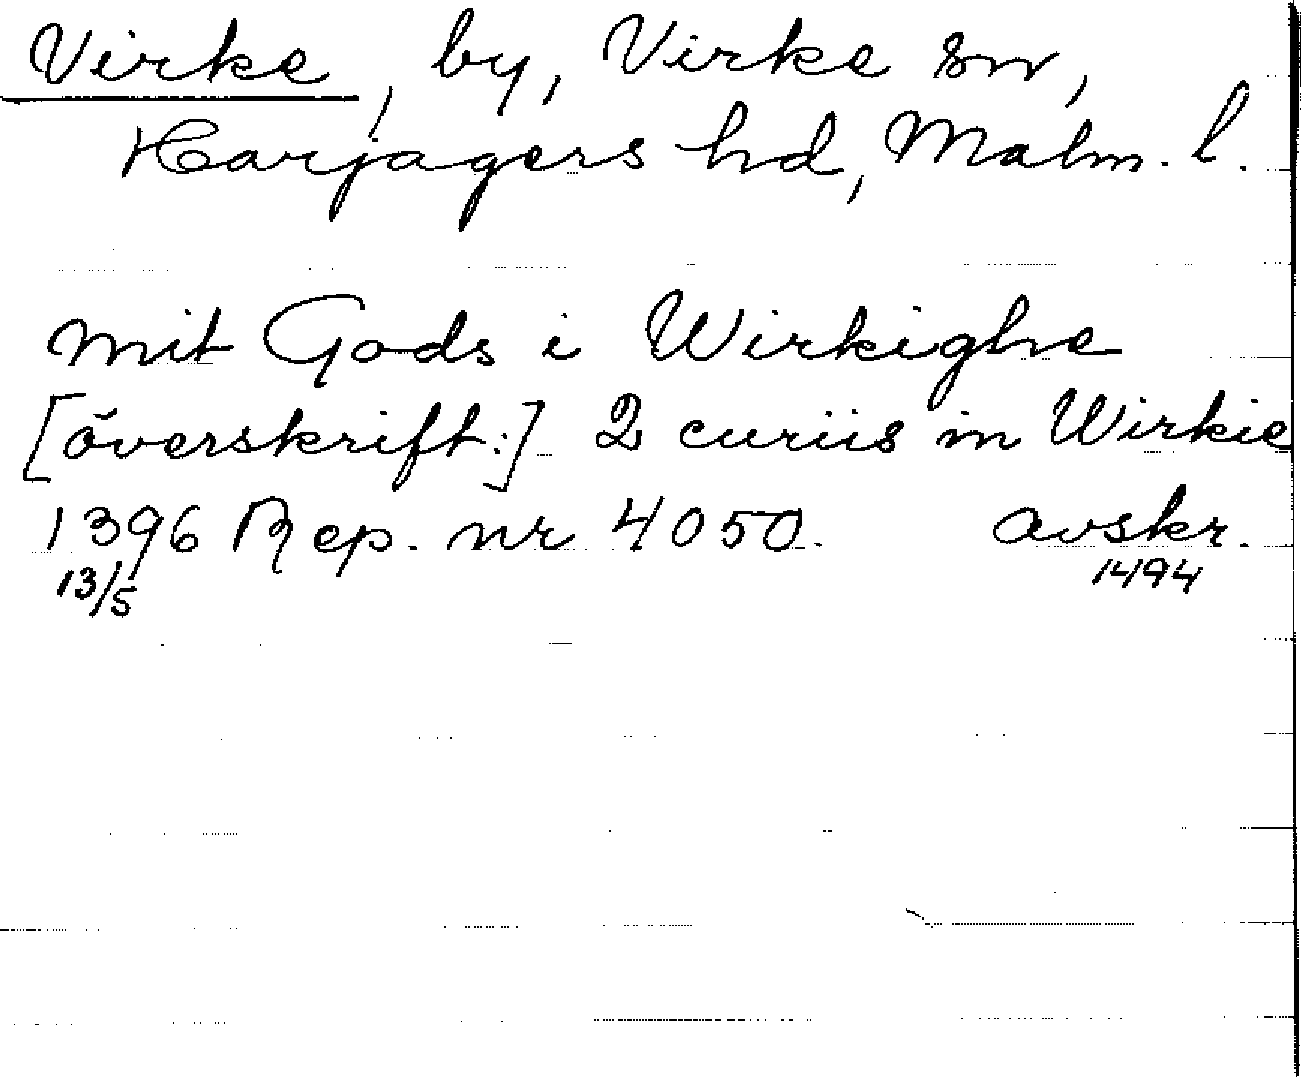 Virke, by, Virke sn,
Harjagers hd, Malm. l.
mit Gods i Wirkighe
[överskrift:] 2 curiis in Wirkie
1396 Rep. nr 4050. avskr.
13/5 1494